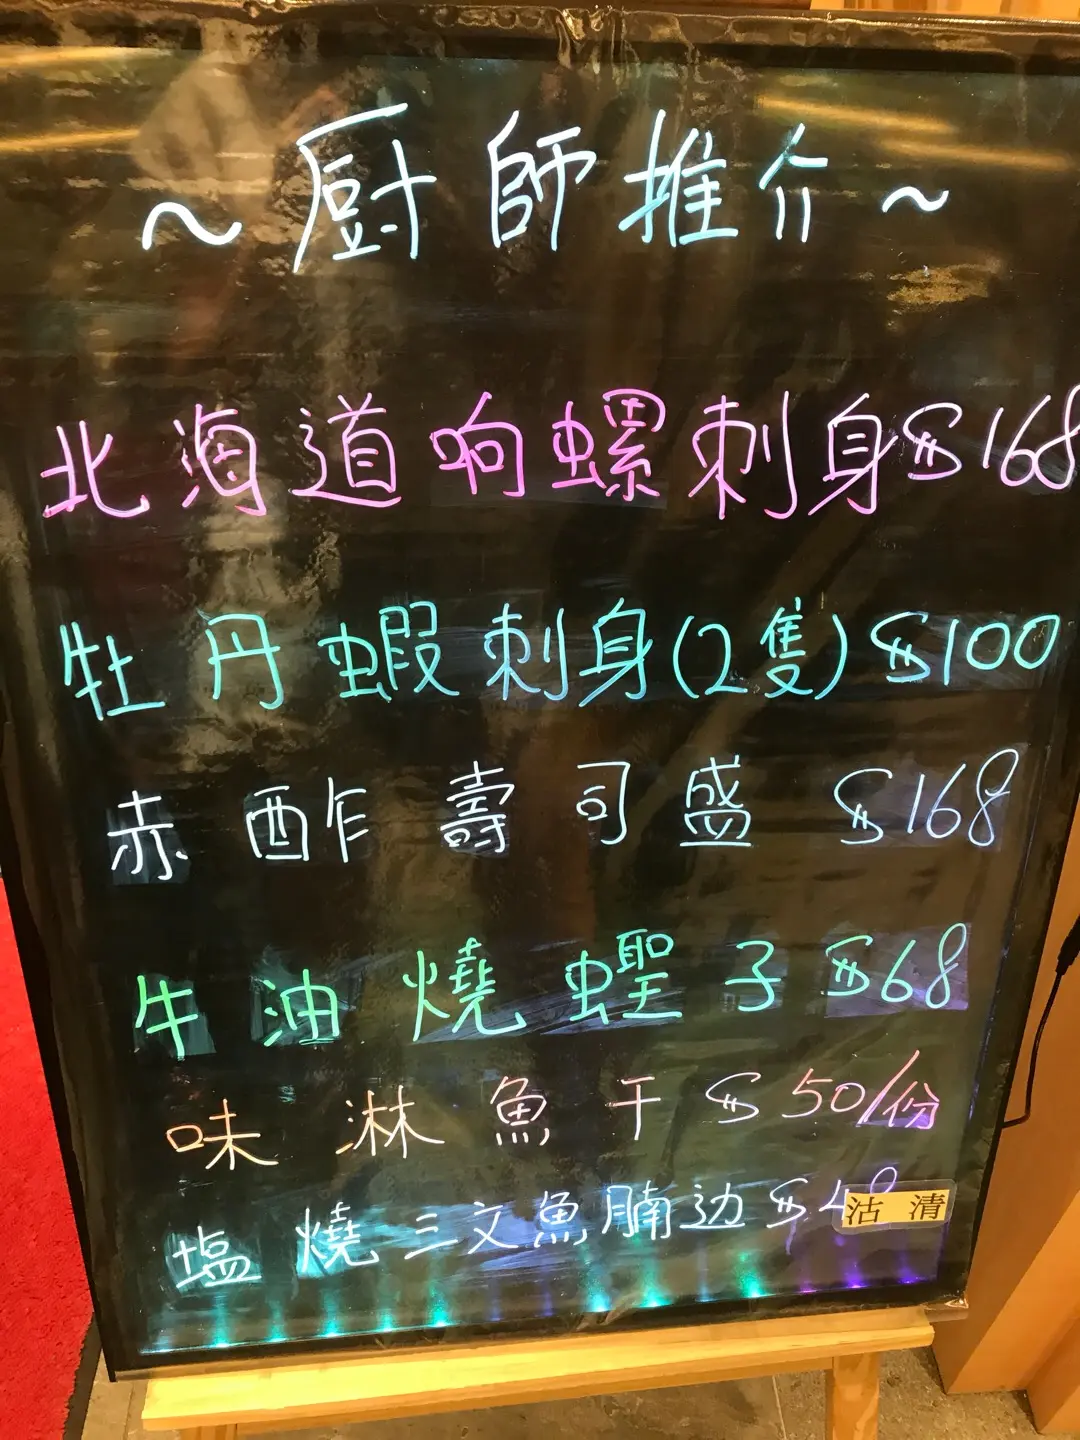 ~厨師推介~
北海道响螺刺身$168
牡丹蝦刺身(2隻)$100
赤酢壽司盛 $168
牛油燒蟶子$68
味淋魚干$50/份
塩燒三文魚腩边$48
沽清